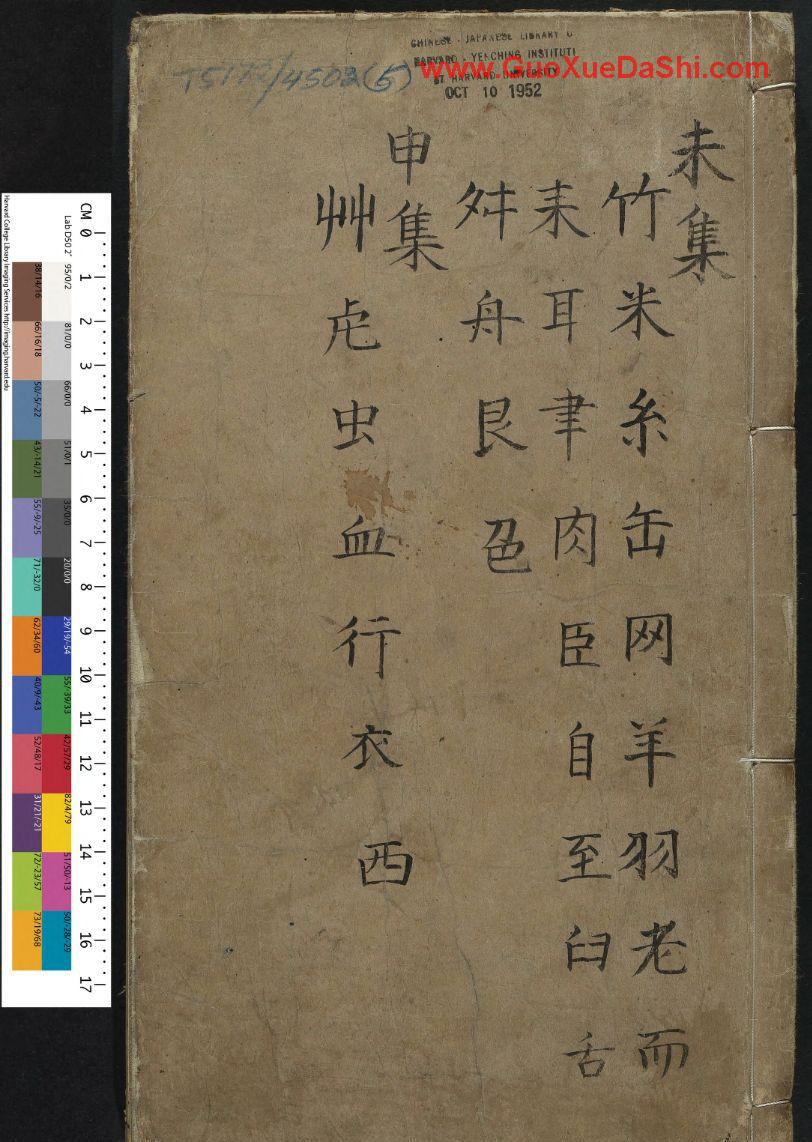 CHINESE - JAPANESE LIBRARY O
HARVARD - YENCHING INSTITUTI
AT HARVARD UNIVERSITY
OCT 10 1952
www.GuoXueDaShi.com
T5172/4502(5)
未集
竹米糸缶网羊羽老而
耒耳聿肉臣自至臼舌
舛舟艮色
申集
艸虍虫血行衣西
CM 0 1 2 3 4 5 6 7 8 9 10 11 12 13 14 15 16 17
Lab D50 2˚ 95/0/2 81/0/0 66/0/0 51/0/1 35/0/0 20/0/0 29/19/-54 55/-39/33 42/57/29 82/4/79 51/50/-13 50/-28/-29
38/14/16 66/16/18 50/-5/-22 43/-14/21 55/-9/-25 71/-32/0 62/34/60 40/9/-43 52/48/17 31/21/-21 72/-23/57 73/19/68
Harvard College Library Imaging Services http://imaging.harvard.edu